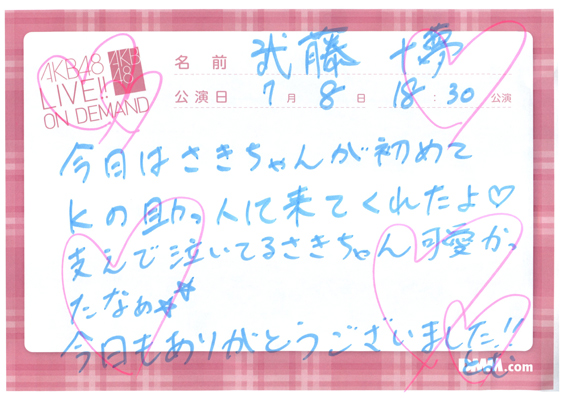 AKB48
LIVE!!
ON DEMAND
AKB
48
名前 武藤 十夢
公演日 7月 8日 18:30公演
今日はさきちゃんが初めて
Kの助っ人に来てくれたよ♡
支えで泣いてるさきちゃん可愛かっ
たなぁ☆☆
今日もありがとうございました!!
とむ
DMM.com